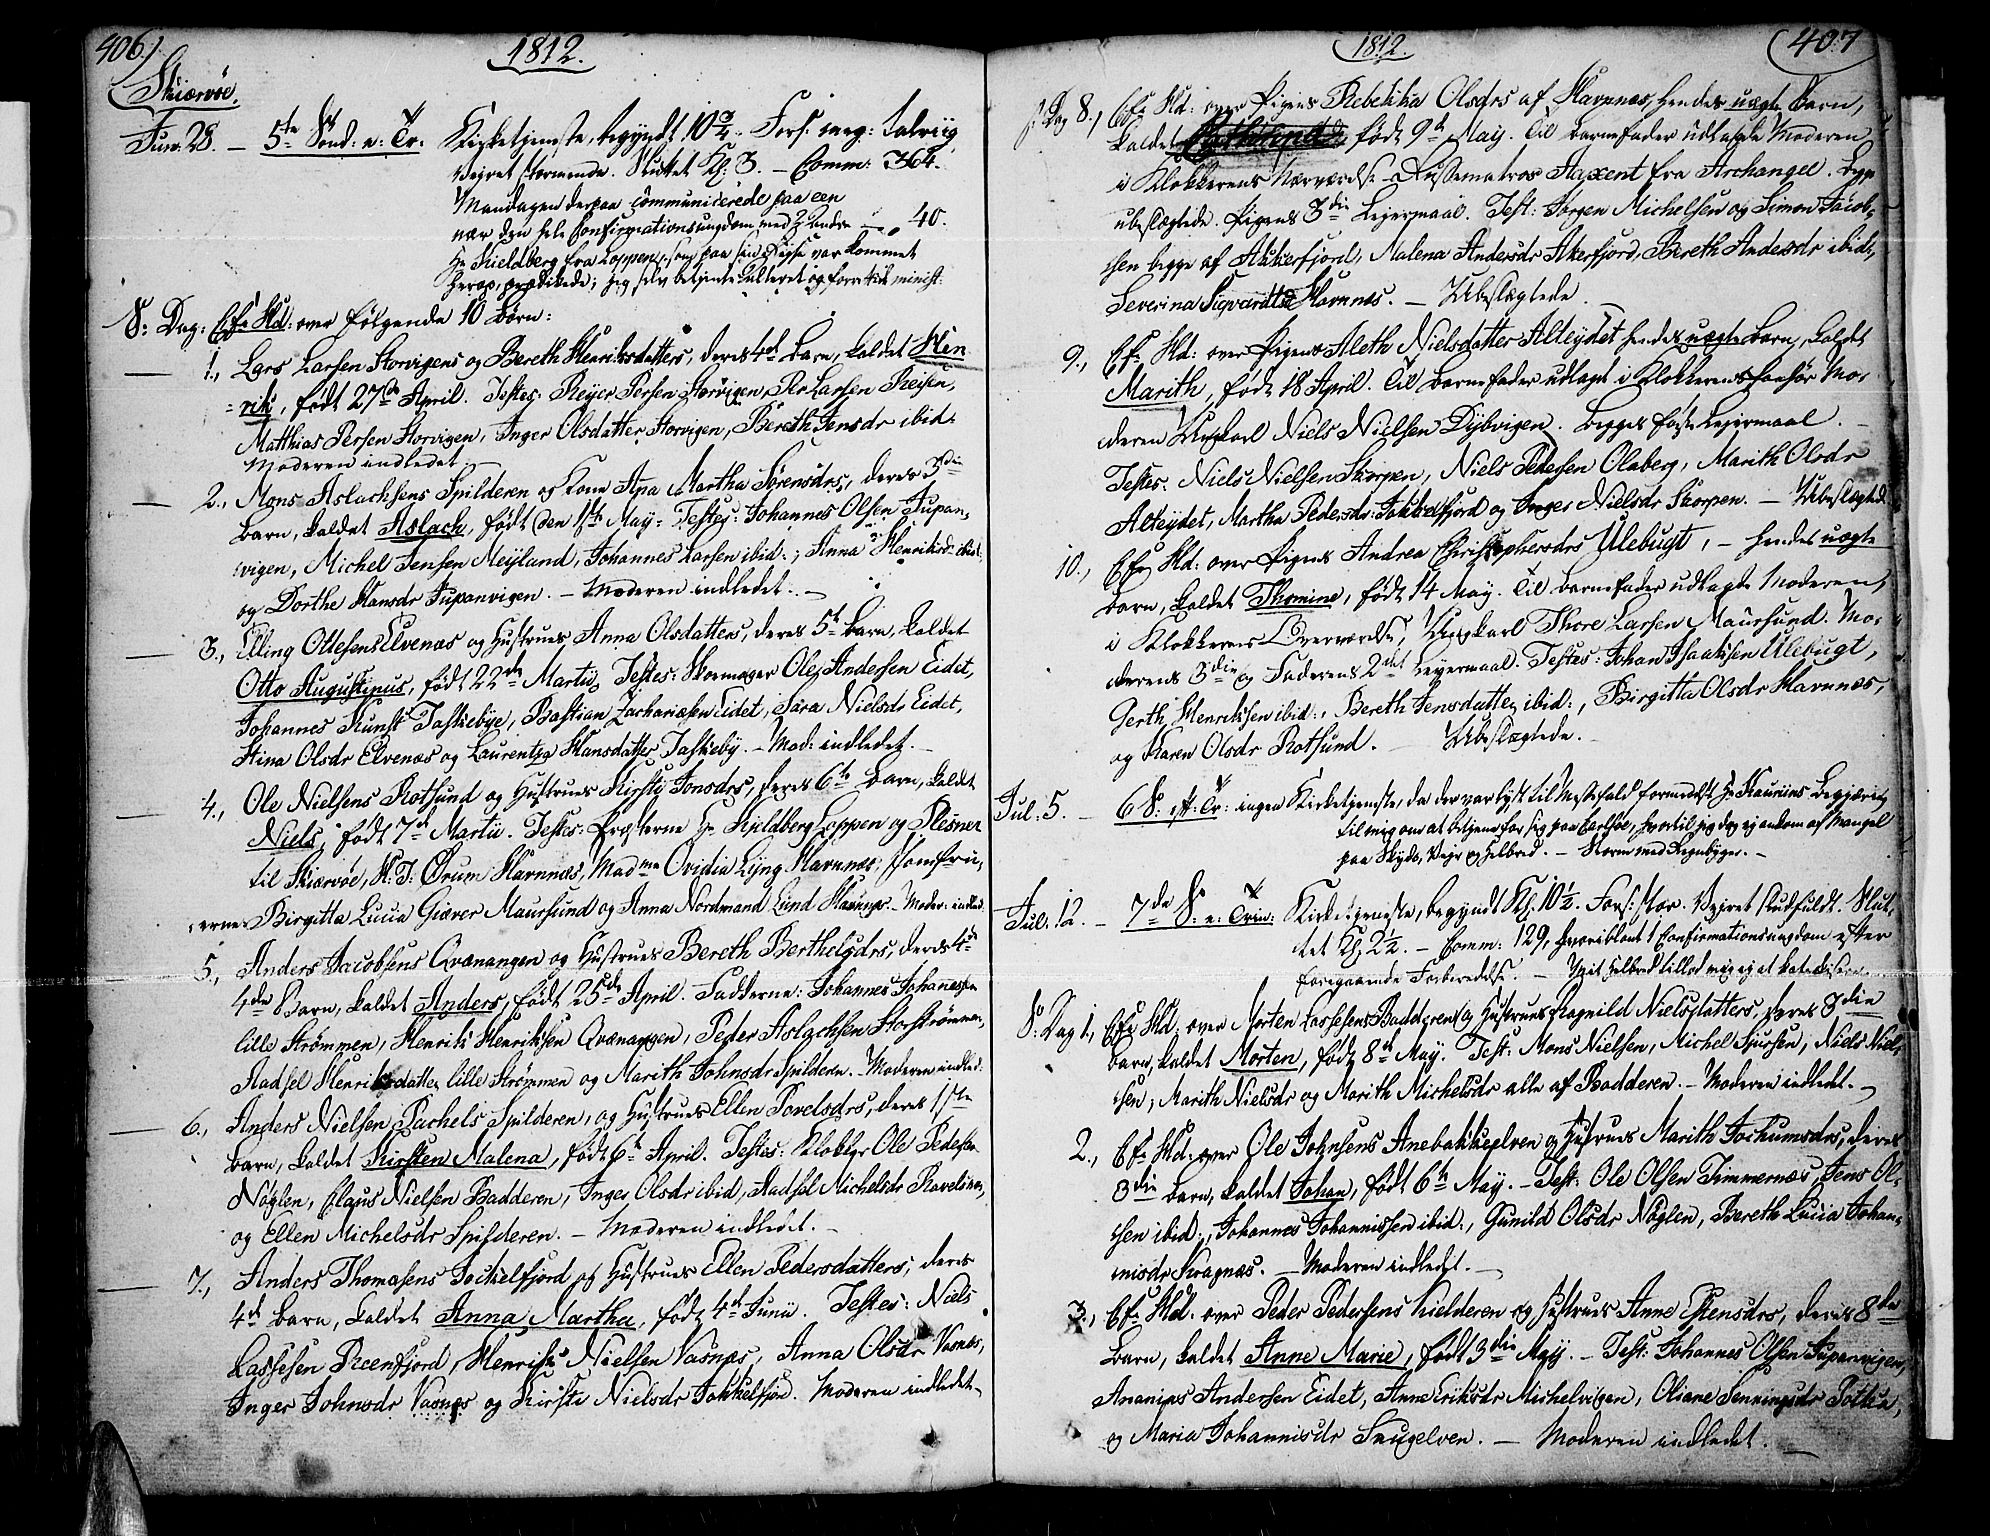 406.)
1812.
Skiervöe.
Jun: 28. — 5te Sönd: e: Tr. Kirketjeneste, begyndt 10 3/4. Fors: meg: talrig
Vejret stormende. Sluttet Kl: 3. — Comm: 364.
Mandagen derpaa communicerede paa een
nær den hele Confirmationsungdom med 2 andre — 40.
Hr Kieldberg fra Loppen, som paa sin Rejse var kommet
herop, prædikede; jeg selv betjente Alteret og forrettede minist:
S: Dag: Efr Hd: over følgende 10 Börn:
1., Lars Larsen Storvigens og Bereth Henriksdatters, deres 4de Barn, kaldet Hen
= rik, födt 27de April. Testes: Rejer Persen Storvigen, Per Larsen Reisen,
Matthias Persen Storvigen, Inger Olsdatter Storvigen, Bereth Jensdr ibid:
Moderen indledet.
2., Mons Aslachsens Spilderen og Kone Ana Martha Sörensdrs, deres 3die
Barn, kaldet Aslach, födt den 1ste May. Testes: Johannes Olsen Jupan,
vigen, Michel Jensen Meiland, Johannes Larsen ibid:, Anna Henriksd: ibid:
og Dorthe Hansdr Jupanvigen. — Moderen indledet. —
3., Elling Ottesens Elvenæs og Hustrues Anna Olsdatters, deres 5te Barn, kaldet
Otto Augustinus, födt 22de Martii. Testes: Skomager Ole Andersen Eidet,
Johannes Kunst Taskebye, Bastian Zachariæsen Eidet, Sara Nielsdr Eidet,
Stina Olsdr Elvenæs og Laurentza Hansdatter Taskeby. — Mod: indledet. —
4., Ole Nielsens Rotsund og Hustrues Kirsti Jonsdrs, deres 6te Barn, kaldet
Niels, födt 7de Martii. Testes: Præsterne Hr Kjeldberg Loppen og Plesner
til Skiærvöe, H. J. Örum Havnnæs, Madme Ovidia Lyng Havnnæs, Jomfru,
erne Birgitta Lucia Giæver Maursund og Anna Nordmand Lund Havnnæs. — Moder: indled:
5., Anders Jacobsens Qvænangen og Hustrues Bereth Berthelsdrs, deres 4de
4de Barn, kaldet Anders, födt 25de April. Fadderne: Johannes Johanesen
lille Strömmen, Henrik Henriksen Qvænangen, Peder Aslachsen Storströmmen,
Aadsel Henriksdatter lille Strömmen og Marith Johnsdr Spilderen. — Moderen indled:
6., Anders Nielsen Pachels Spilderen, og Hustrues Ellen Povelsdrs, deres 1ste
Barn, kaldet Kirsten Malena, födt 6te April. Testes: Klokker Ole Pedersen
Nöglen, Claus Nielsen Badderen, Inger Olsdr ibid, Aadsel Michelsdr Ravelsen,
og Ellen Michelsdr Spilderen. — Moderen indledet. —
7., Anders Thomasens Jockelfjord og Hustrues Ellen Pedersdatters, deres
4de Barn, kaldet Anna Martha, födt 4de Junii. Testes: Niels
Lassesen Reenfjord, Henrik Nielsen Vasnæs, Anna Olsdr Vasnæs,
Inger Johnsdr Vasnæs og Kirsti Nielsdr Jokkelfjor. Moderen indledet.
1812.
407
S: Dag 8., Efr Hd: over Pigens Rebekka Olsdrs af Havnnæs, hendes uægte Barn,
kaldet födt 9de May. Til Barnefader udlagde Moderen
i Klokkerens Nærværelse Russematros Aaxent fra Archangel. Begge
ubeslægtede. Pigens 3die Lejermaal. Test: Jörgen Michelsen og Simon Jacob,
sen begge af Akkerfjord, Malena Andersdr Akerfjord, Bereth Andersdr ibid:,
Severina Sigvardtsd Havnnæs. — Ubeslægtede.
9., Efr Hd: over Pigens Aleth Nielsdatter Alteydet hendes uægte Barn, kaldet
Marith, födt 18 April. Til Barnefader udlagt i Klokkerens paahör Mo,
deren Ungkarl Niels Nielsen Dybvigen. Begges förste Lejermaal. —
Testes: Niels Nielsen Skorpen, Niels Pedersen Olaberg, Marith Olsdr
Alteydet, Martha Pedersdr Jokkelfjord og Inger Nielsdr Skorpen. — Ubeslægtede
10., Efr Hd: over Pigens Andrea Christophersdrs Ulebugt, — hendes uægte
Barn, kaldet Thomine, födt 14 May. Til Barnefader udlagde Moderen,
i Klokkerens Overværelse, Ungkarl Thore Larsen Maursund. Mo,
derens 3die og Faderens 2det Leyermaal. Testes: Johan Isaaksen Ulebugt,
Gerth Henriksen ibid:, Bereth Jensdatter ibid:, Birgitta Olsdr Havnnæs,
og Karen Olsdr Rotsund. — Ubeslægtede. —
Jul: 5. — 6 S: eft: Tr: ingen Kirketjeneste, da der var lyst til Messefald formedelst Hr Begjæring
til mig om at betjene for sig paa Carlsöe, hvortil jeg dog ej ankom af Mangel
paa Skyds, Vejr og Helbred. — Storm med Regnbyger. —
Jul: 12. — 7de S: e: Trin: Kirketjeneste, begyndt Kl. 10 1/2. Fors: stor. Vejret skudfuldt. Slut,
tet Kl. 2 1/2. — Comm: 129, hvoriblant 1 Confirmationsungdom efter
foregaaende Forberedelse. — Mit Helbred tillod mig ej at katechisere.
S: Dag 1., Efr Hd: over Morten Lassesens Badderens og Hustrues Ragnild Nielsdatters, deres 3die
Barn, kaldet Morten, födt 8de May. Test: Mons Nielsen, Michel Sjursen, Niels Niel,
sen, Marith Nielsdr og Marith Michelsdr alle af Badderen. — Moderen indledet. —
2., Efr Hd: over Ole Johnsens Anebakkeelven og Hustrues Marith Jochumsdrs, deres
3die Barn, kaldet Johan, födt 6te May. — Test: Ole Olsen Timmernæs, Jens Ol,
sen ibid:, Johannes Johannissen ibid:, Gunild Olsdr Nöglen, Bereth Lucia Johan,
nisdr Kragnæs. — Moderen indledet. —
3., Efr Hd: over Peder Pedersens Kielderen og Hustrues Anne Estensdrs, deres 8de
Barn, kaldet Anne Marie, födt 3die May. — Test: Johannes Olsen Jupanvigen,
Ananias Andersen Eidet, Anne Eriksdr Michelvigen, Oliane Henningsdr
og Maria Johannisdr Snugelven. — Moderen indledet. —